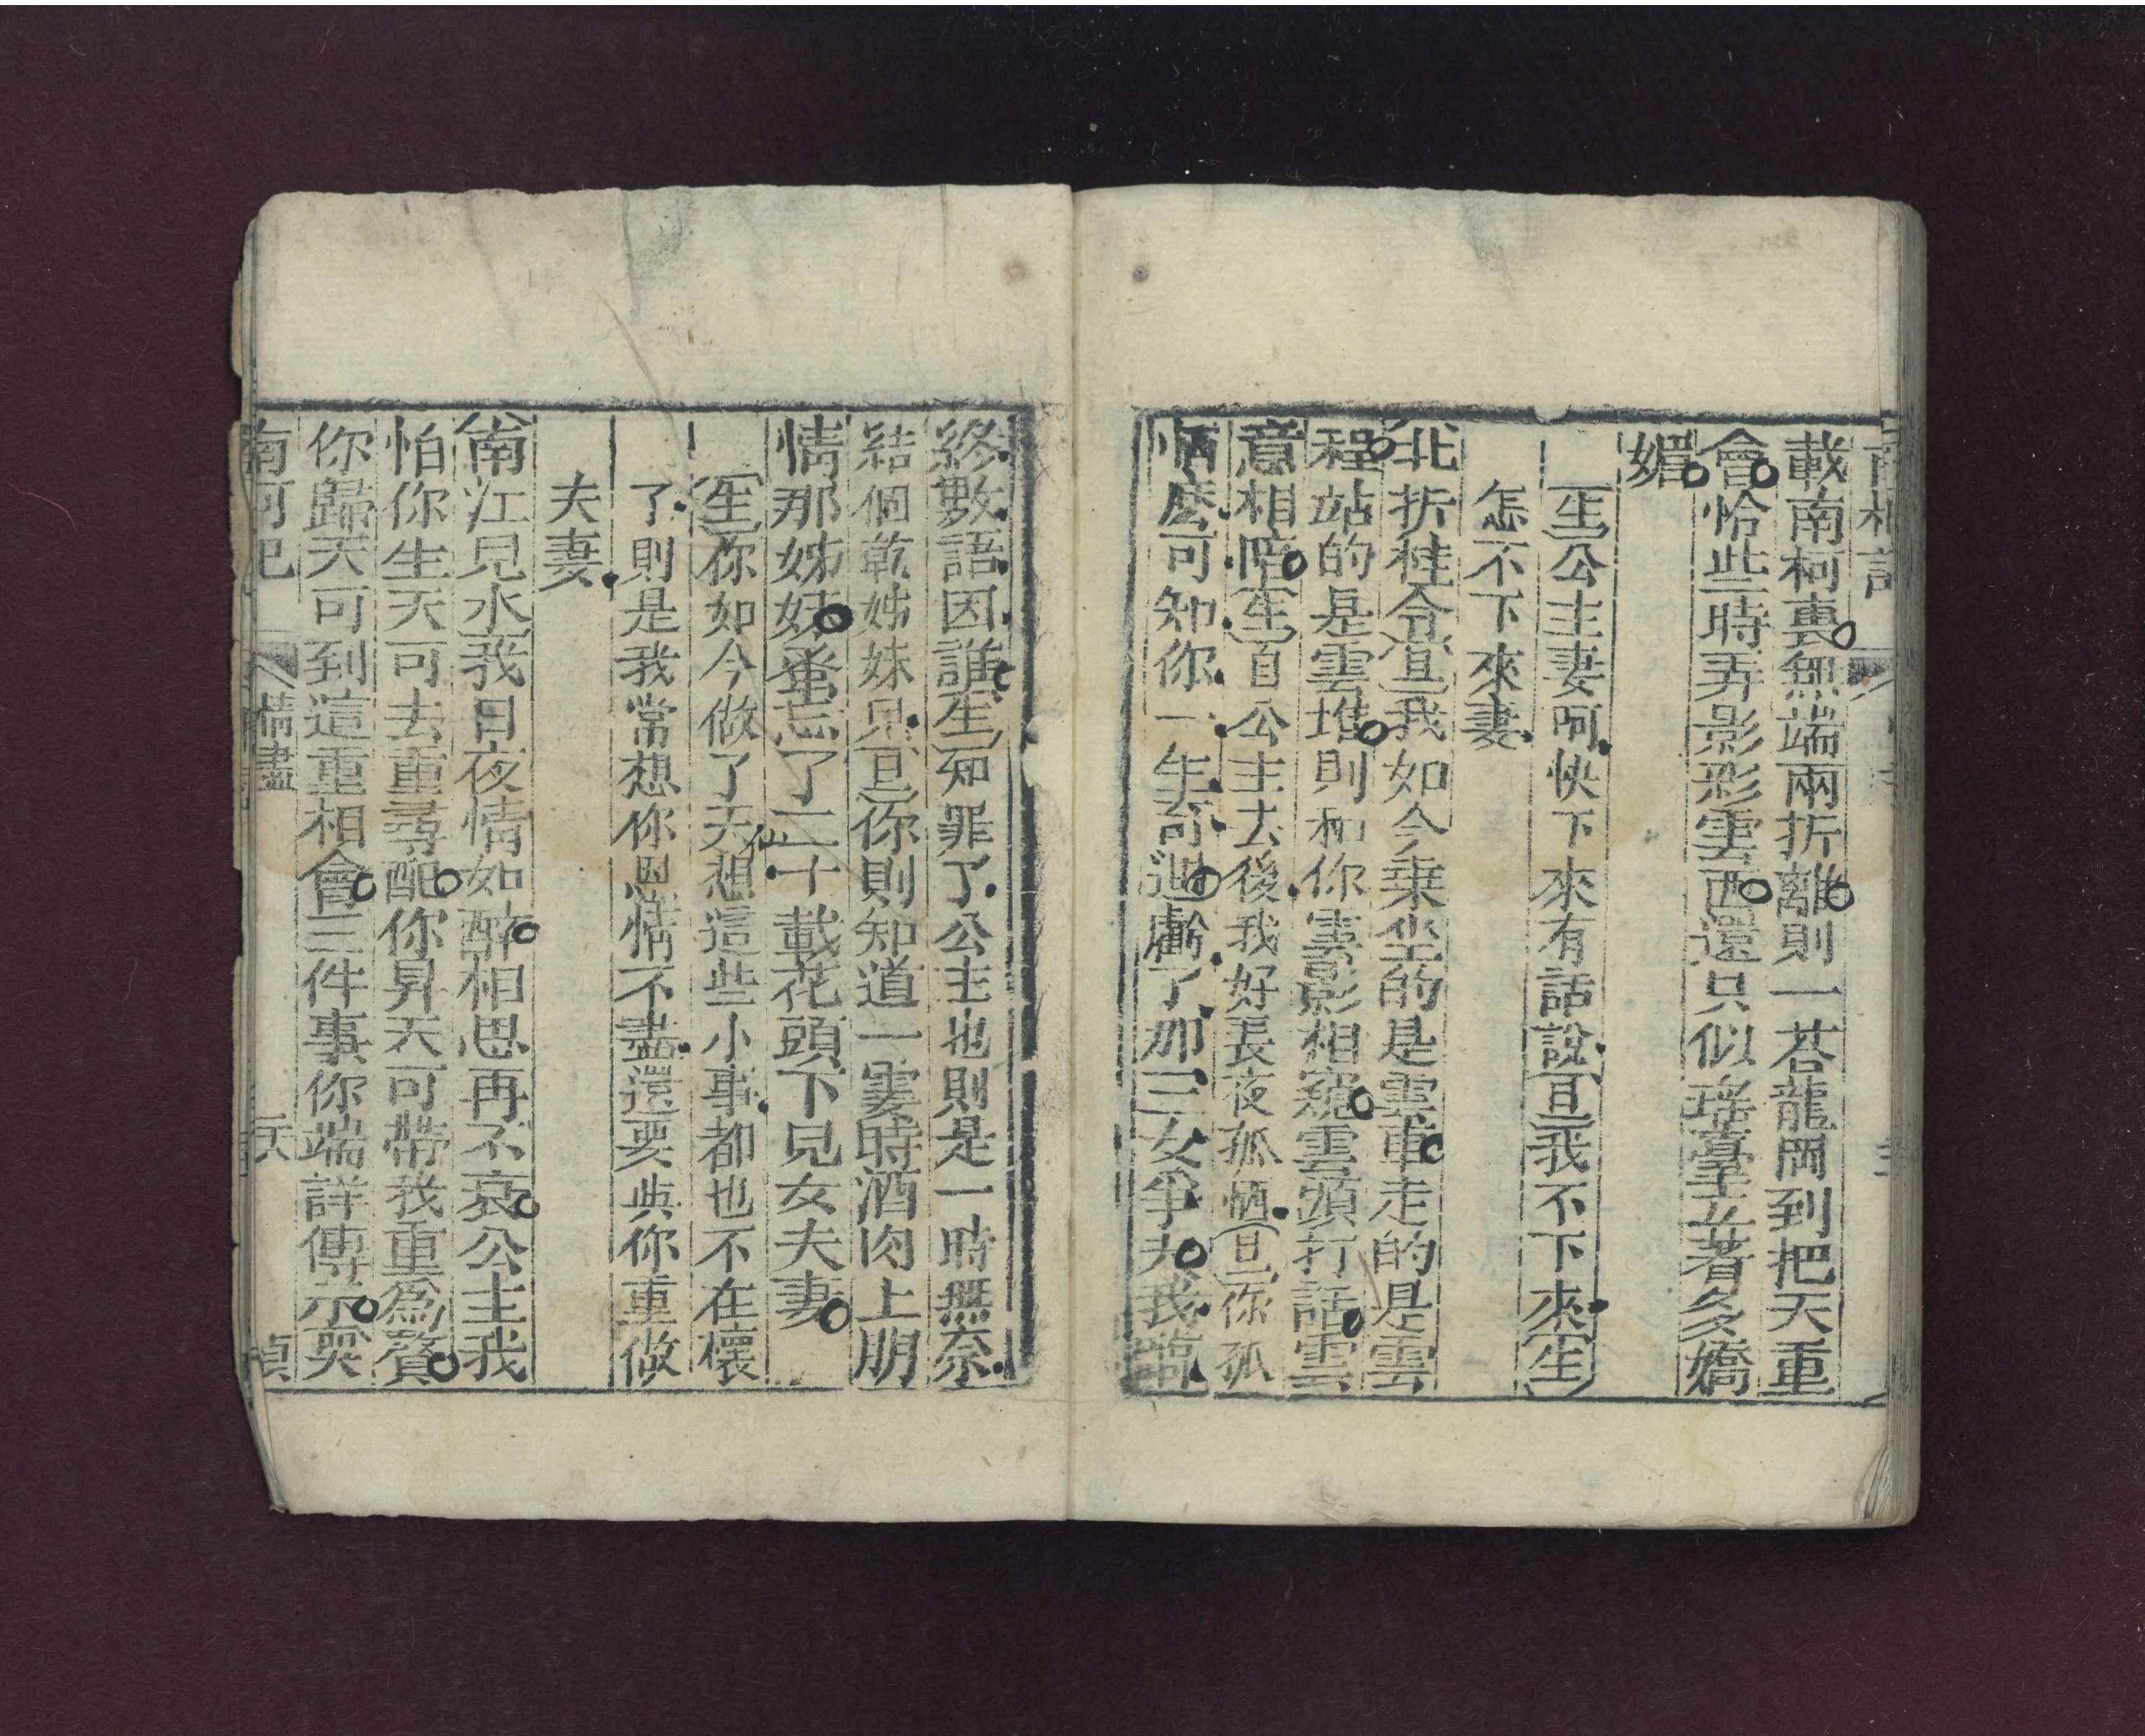 載南柯裏無端兩折離則一荅龍岡到把天重
會恰些時弄影彩雲西還只似瑤臺立著多嬌
媚
生公主妻呵快下來有話說旦我不下來生
怎不下來妻
北折桂令旦我如今乗坐的是雲車走的是雲
程站的是雲堆則和你雲影相窺雲頭打話雲
意相陪生自公主去後我好長夜孤恓旦你孤
恓麽可知你一生奇遇虧了那三女爭夫我臨
終數語因誰生知罪了公主也則是一時無奈
結個乾姊妹兒旦你則知道一霎時酒肉上朋
情那姊妹番忘了二十載花頭下兒女夫妻
生你如今做了天仙想這些小事都也不在懷
了則是我常想你恩情不盡還要與你重做
夫妻
南江兒水我日夜情如醉相思再不衰公主我
怕你生天可去重尋配你昇天可帶我重爲贅
你歸天可到這重相會三件事你端詳傳示哭
南柯記 情盡